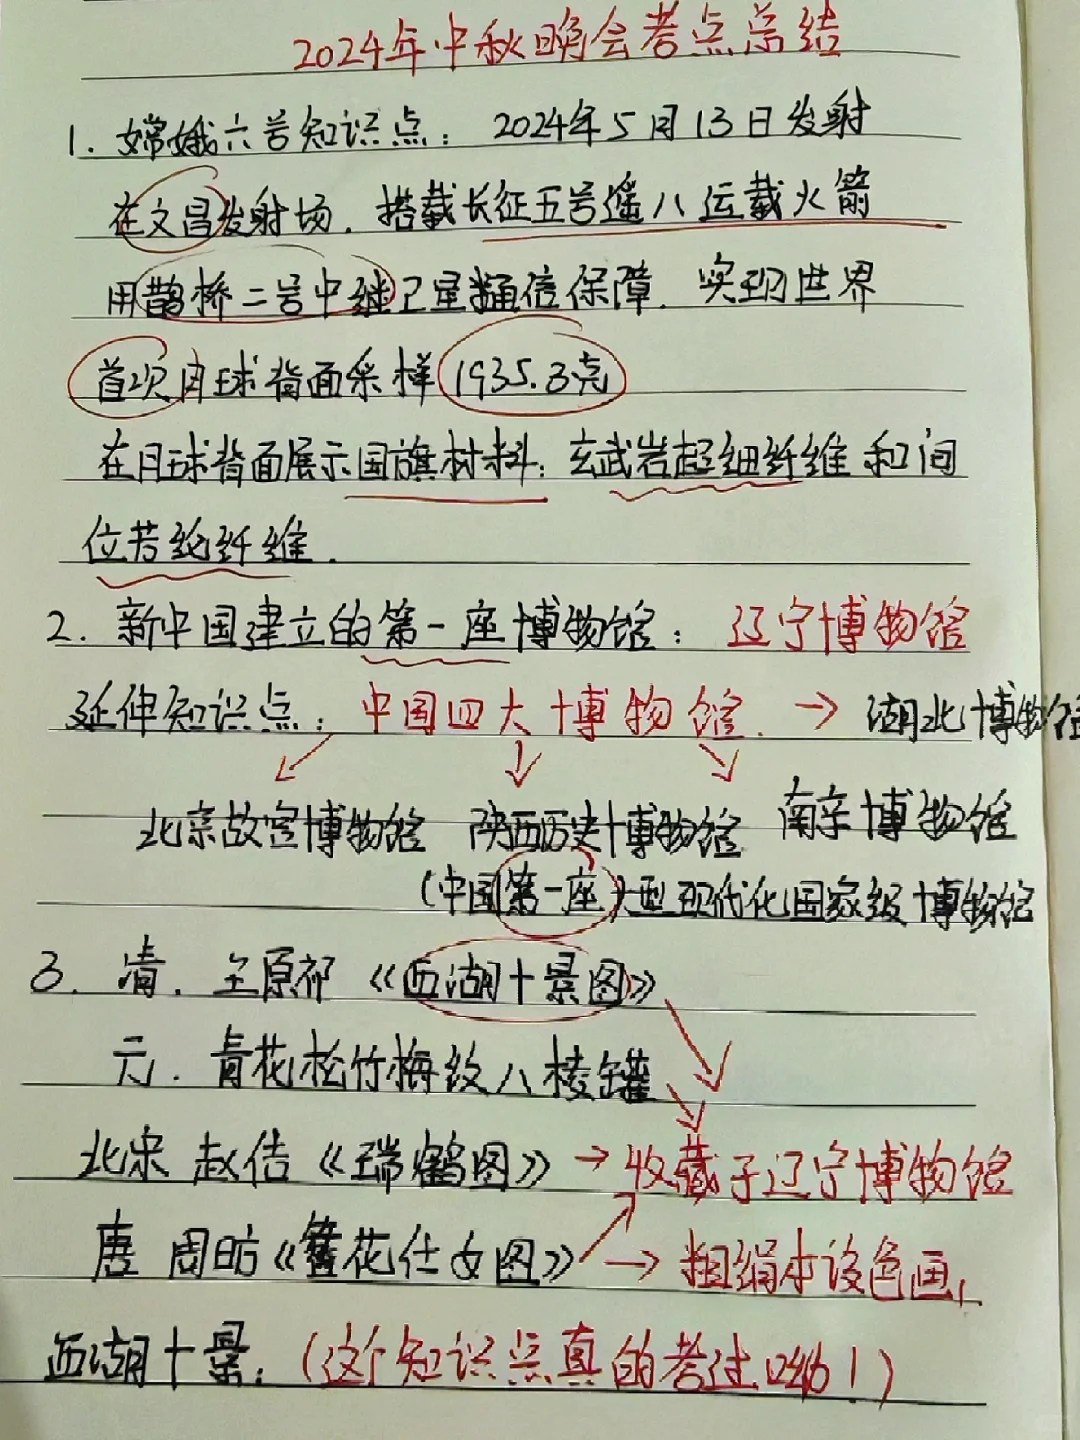 2024年中秋晚会考点总结
1. 嫦娥六号知识点：2024年5月13日发射
在文昌发射场. 搭载长征五号遥八运载火箭
用鹊桥二号中继卫星通信保障. 实现世界
首次月球背面采样1935.3克
在月球背面展示国旗材料：玄武岩超细纤维和间
位芳纶纤维.
2. 新中国建立的第一座博物馆：辽宁博物馆
延伸知识点：中国四大博物馆. → 湖北博物馆
北京故宫博物馆 陕西历史博物馆 南京博物馆
(中国第一座)大型现代化国家级博物馆
3. 清. 王原祁《西湖十景图》
元. 青花松竹梅纹八棱罐
北宋 赵佶《瑞鹤图》→收藏于辽宁博物馆
唐 周昉《簪花仕女图》→粗绢本设色画.
西湖十景：(这个知识点真的考过呦！)